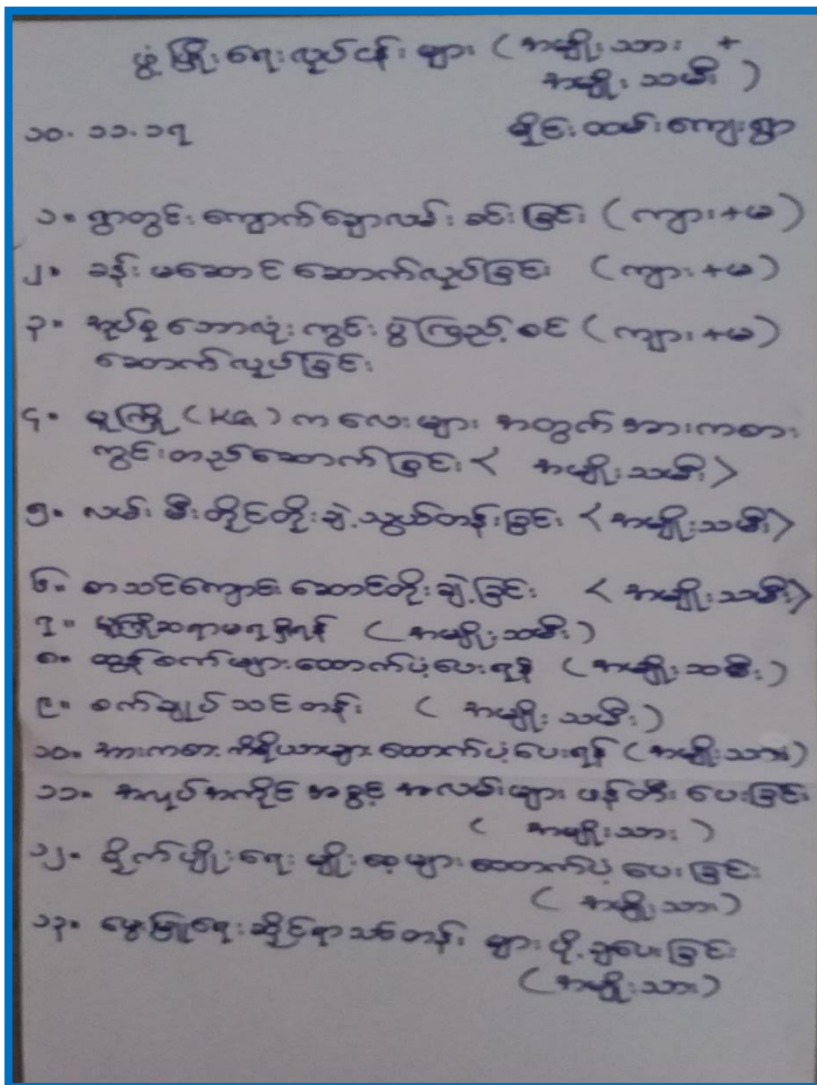 ဖွံ့ဖြိုးရေးလုပ်ငန်းများ (အမျိုးသား +
အမျိုးသမီး)
၁၀.၁၁.၁၇ မိုင်းထမ်းကျေးရွာ
၁။ ရွာတွင်းကျောက်ချောလမ်းခင်းခြင်း (ကျား+မ)
၂။ ခန်းမဆောင် ဆောက်လုပ်ခြင်း (ကျား+မ)
၃။ အုပ်စုဘောလုံးကွင်းပွဲကြည့်စင် (ကျား+မ)
ဆောက်လုပ်ခြင်း
၄။ မူကြို (KG) ကလေးများ အတွက်အားကစား
ကွင်းတည်ဆောက်ခြင်း < အမျိုးသမီး >
၅။ လမ်းမီးတိုင်တိုးချဲ့သွယ်တန်းခြင်း < အမျိုးသမီး >
၆။ စာသင်ကျောင်းဆောင်တိုးချဲ့ခြင်း < အမျိုးသမီး >
၇။ မူကြိုဆရာမရရှိရန် (အမျိုးသမီး)
၈။ ထွန်စက်များထောက်ပံ့ပေးရန် (အမျိုးသမီး)
၉။ စက်ချုပ်သင်တန်း (အမျိုးသမီး)
၁၀။ အားကစားကိရိယာများ ထောက်ပံ့ပေးရန် (အမျိုးသား)
၁၁။ အလုပ်အကိုင် အခွင့်အလမ်းများ ဖန်တီးပေးခြင်း
(အမျိုးသား)
၁၂။ စိုက်ပျိုးရေး မျိုးစေ့များထောက်ပံ့ပေးခြင်း
(အမျိုးသား)
၁၃။ မွေးမြူရေးဆိုင်ရာသင်တန်း များပို့ချပေးခြင်း
(အမျိုးသား)